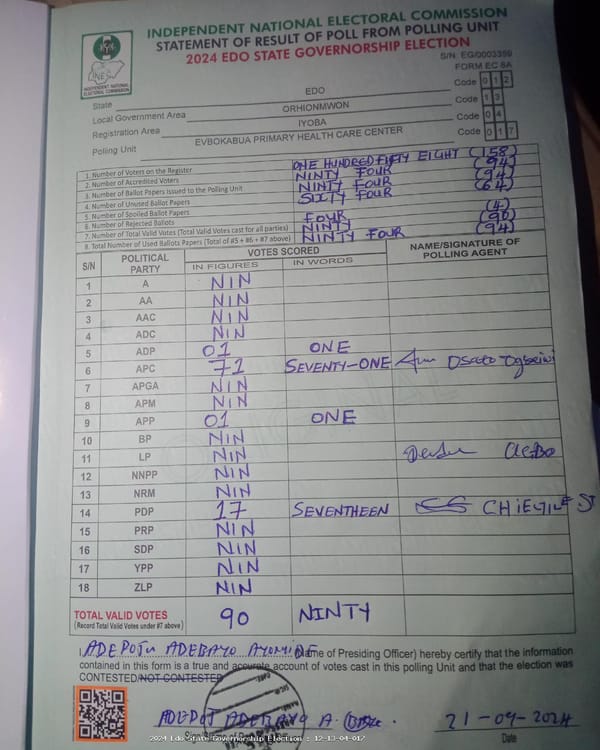 INDEPENDENT NATIONAL ELECTORAL COMMISSION
STATEMENT OF RESULT OF POLL FROM POLLING UNIT
2024 EDO STATE GOVERNORSHIP ELECTION
S/N: EG/0003359
FORM EC 8A
INEC
INDEPENDENT NATIONAL ELECTORAL COMMISSION
State EDO Code 0 1 2
Local Government Area ORHIONMWON Code 1 3
Registration Area IYOBA Code 0 4
Polling Unit EVBOKABUA PRIMARY HEALTH CARE CENTER Code 0 1 7
1. Number of Voters on the Register ONE HUNDRED FIFTY EIGHT (158)
2. Number of Accredited Voters NINTY FOUR (94)
3. Number of Ballot Papers Issued to the Polling Unit NINTY FOUR (94)
4. Number of Unused Ballot Papers SIXTY FOUR (64)
5. Number of Spoiled Ballot Papers
6. Number of Rejected Ballots FOUR (4)
7. Number of Total Valid Votes (Total Valid Votes cast for all parties) NINTY (90)
8. Total Number of Used Ballots Papers (Total of #5 + #6 + #7 above) NINTY FOUR (94)
S/N POLITICAL PARTY VOTES SCORED NAME/SIGNATURE OF POLLING AGENT
IN FIGURES IN WORDS
1 A NIN
2 AA NIN
3 AAC NIN
4 ADC NIN
5 ADP 01 ONE
6 APC 71 SEVENTY-ONE
7 APGA NIN
8 APM NIN
9 APP 01 ONE
10 BP NIN
11 LP NIN
12 NNPP NIN
13 NRM NIN
14 PDP 17 SEVENTHEEN
15 PRP NIN
16 SDP NIN
17 YPP NIN
18 ZLP NIN
TOTAL VALID VOTES 90 NINTY
(Record Total Valid Votes under #7 above)
I, ADEPOJU ADEBAYO AYOMIDE (Name of Presiding Officer) hereby certify that the information
contained in this form is a true and accurate account of votes cast in this polling Unit and that the election was
CONTESTED/NOT CONTESTED
ADEPOJ ADEBAYO A. 21-09-2024
Date
2024 Edo State Governorship Election : 12-13-04-017